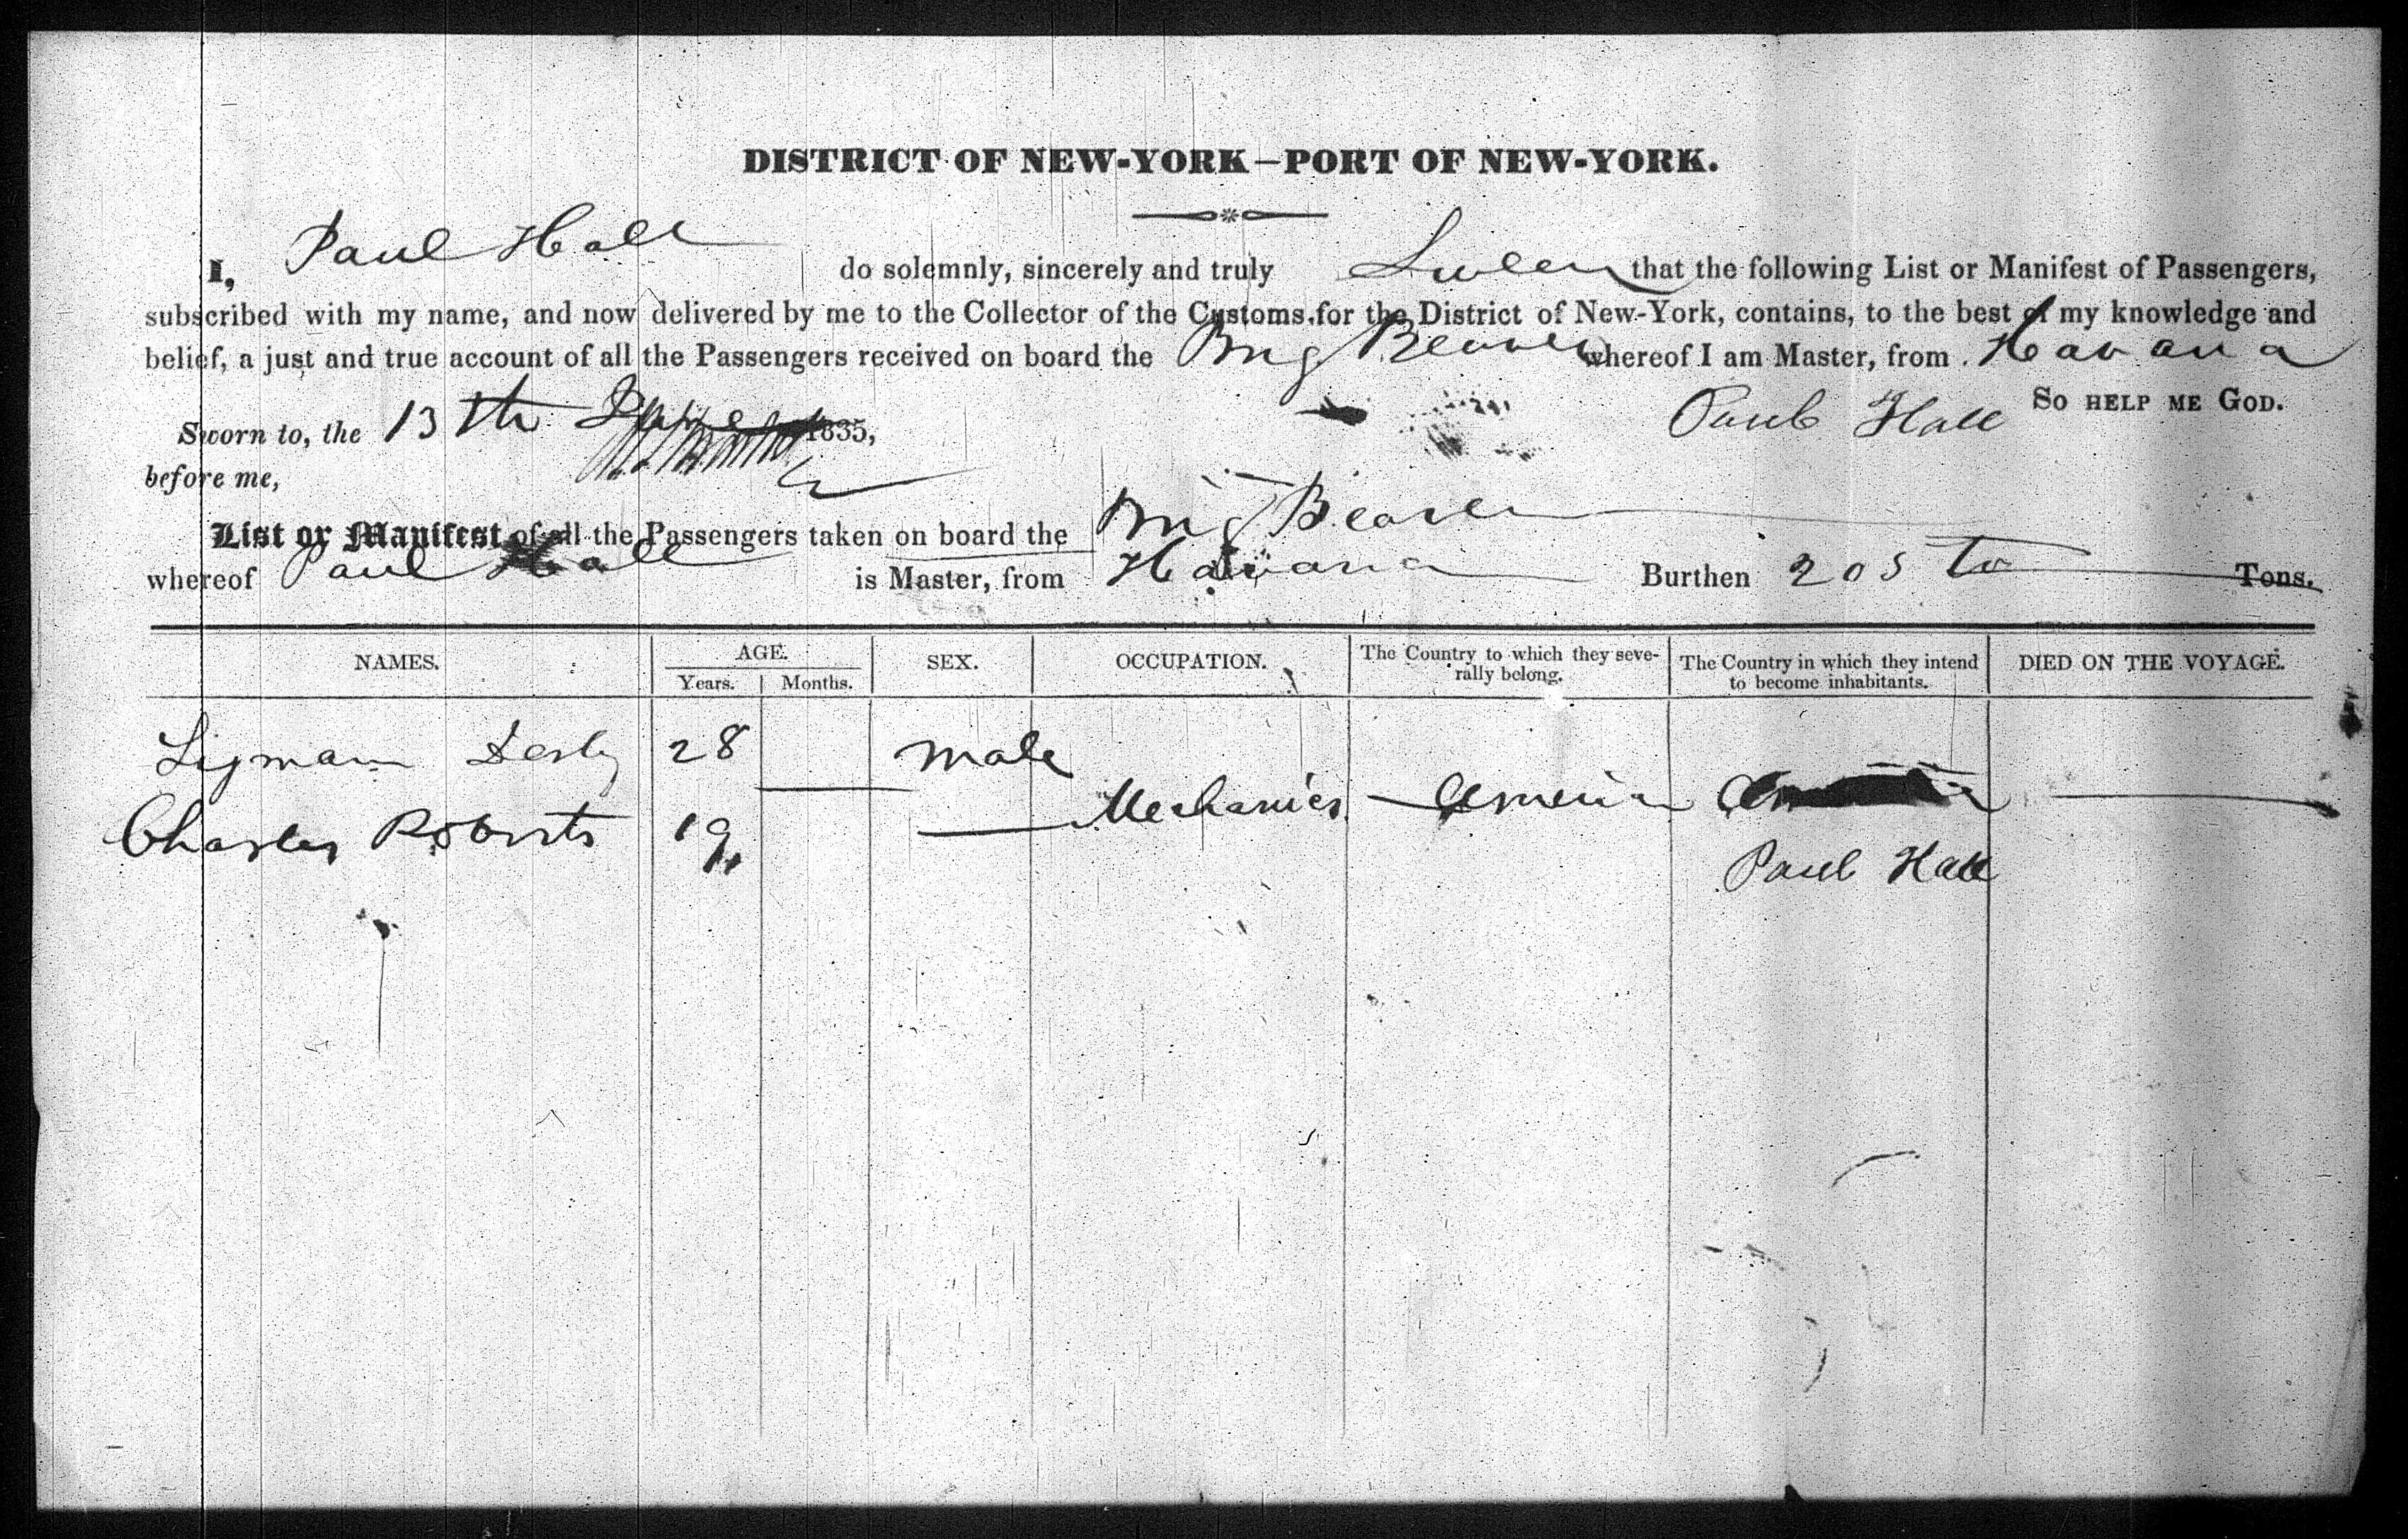 DISTRICT OF NEW-YORK—PORT OF NEW-YORK.
I, Paul Hall do solemnly, sincerely and truly that the following List or Manifest of Passengers,
subscribed with my name, and now delivered by me to the Collector of the Customs for the District of New-York, contains, to the best of my knowledge and
belief, a just and true account of all the Passengers received on board the Brig Beaver whereof I am Master, from Havana
So help me God.
Paul Hall
Sworn to, the 13th June 1835,
before me,
List or Manifest of all the Passengers taken on board the Brig Beaver
whereof Paul Hall is Master, from Havana Burthen 205 Tons.
NAMES. AGE. SEX. OCCUPATION. The Country to which they severally belong. The Country in which they intend to become inhabitants. DIED ON THE VOYAGE.
Years. Months.
28 male
Mechanics America
Charles Roberts 19
Paul Hall